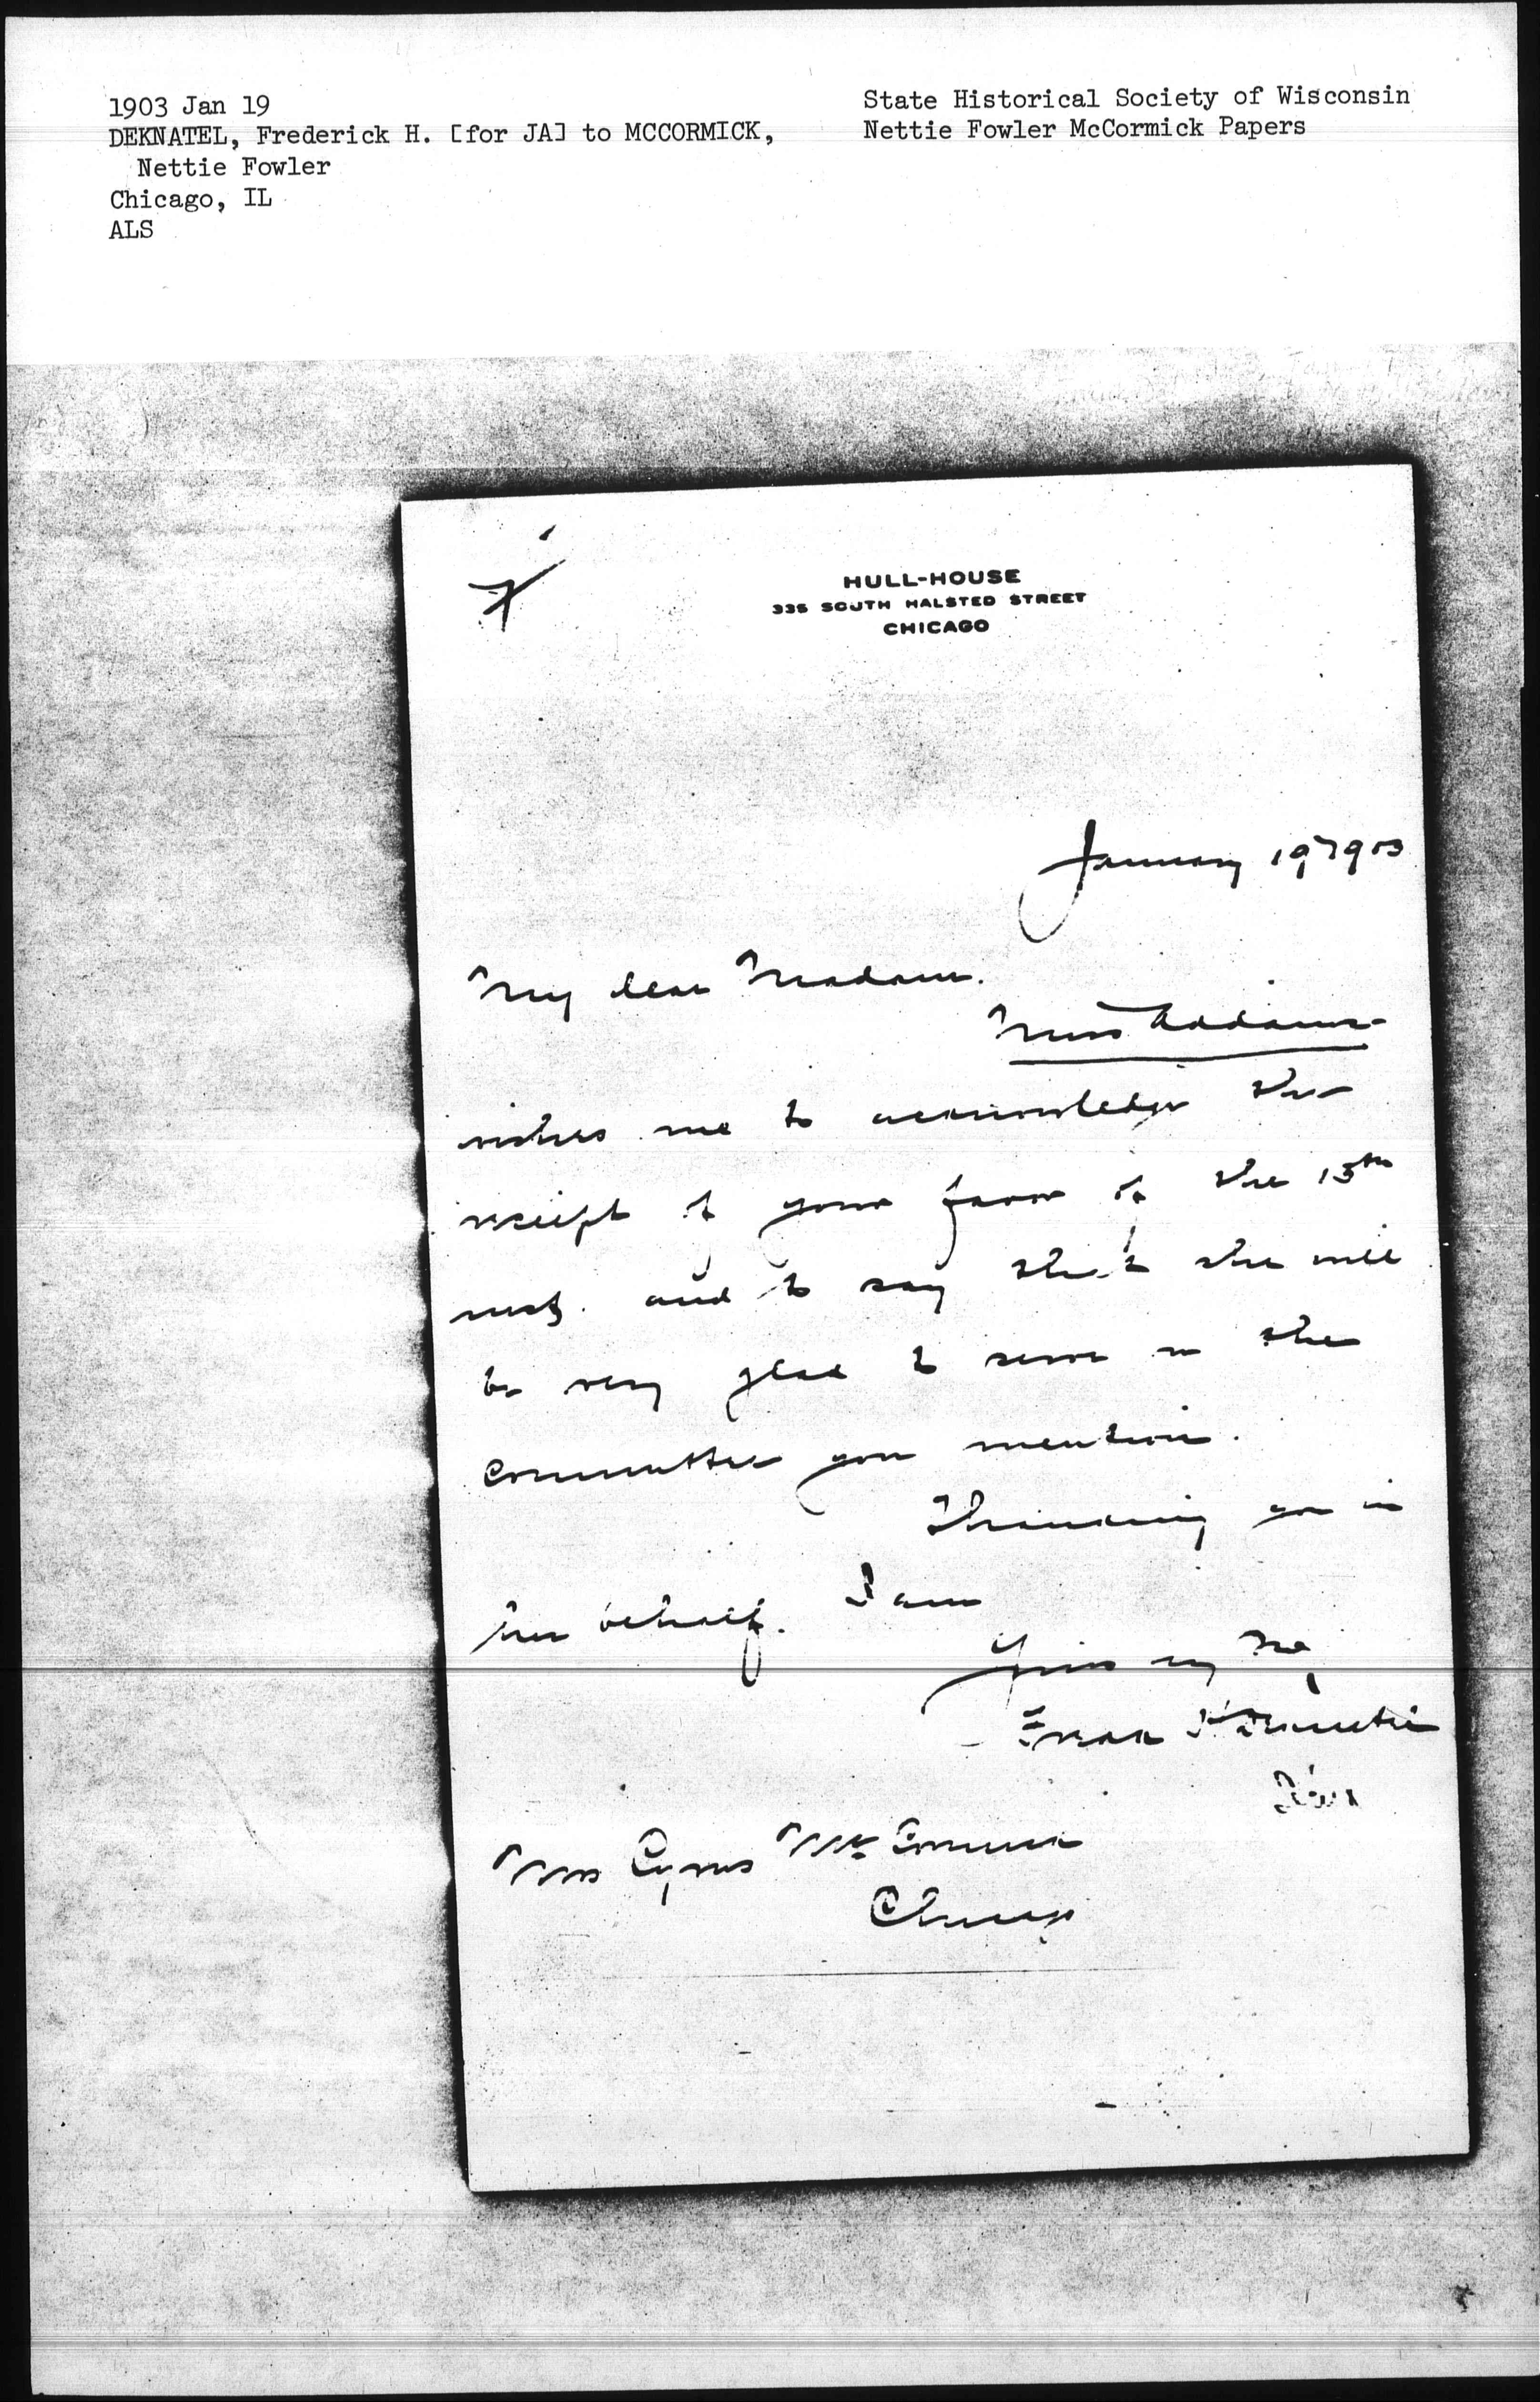 1903 Jan 19
DEKNATEL, Frederick H. [for JA] to MCCORMICK,
Nettie Fowler
Chicago, IL
ALS
State Historical Society of Wisconsin
Nettie Fowler McCormick Papers
HULL-HOUSE
335 SOUTH HALSTED STREET
CHICAGO
January 19 1903
My dear Madam.
Miss Addams
wishes me to acknowledge the
receipt of your favor of the 15th
inst. and to say that she will
be very glad to serve on the
committee you mention.
Thanking you in
her behalf. I am
Yours very
Deknatel
Mrs Cyrus McCormick
Chicago